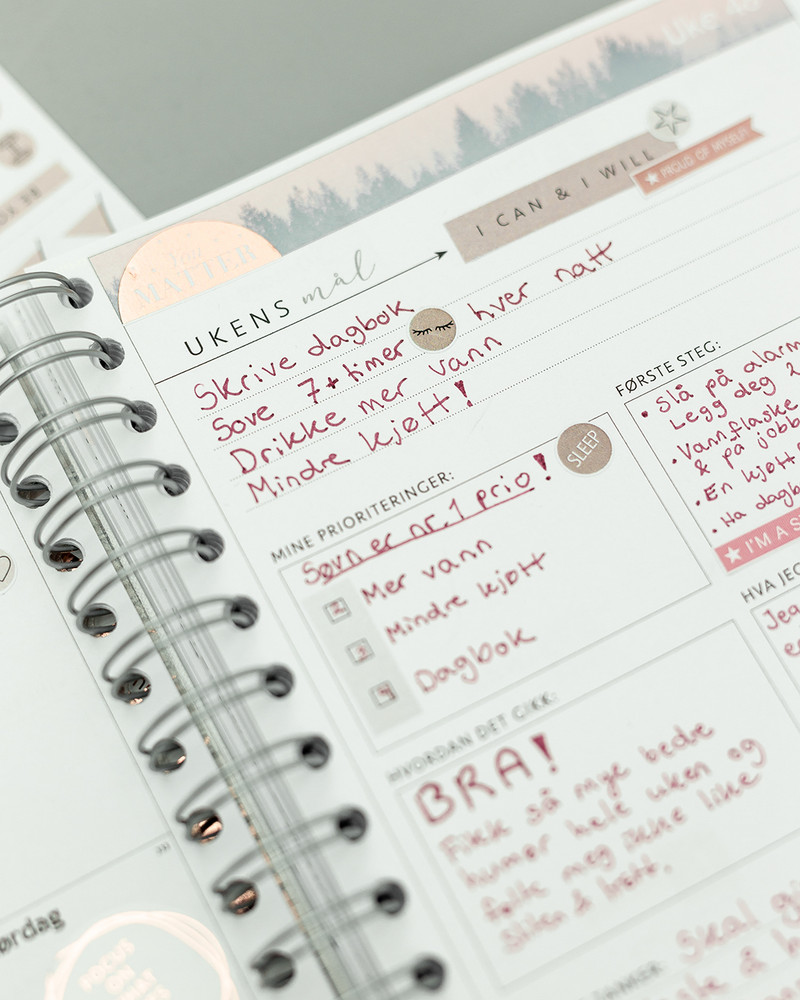 Uke 40
YOU MATTER
I CAN & I WILL
PROUD OF MYSELF!
UKENS mål
Skrive dagbok
Sove 7+ timer hver natt
Drikke mer vann
Mindre kjøtt!
MINE PRIORITERINGER:
SLEEP
Søvn er nr. 1 prio!
2 Mer vann
3 Mindre kjøtt
4 Dagbok
FØRSTE STEG:
• Slå på alarm
Legg deg 2
• Vannflaske
& på jobb
• En kjøtt
• Ha dagb
I'M A S
HVORDAN DET GIKK:
BRA!
Fikk så mye bedre
humør hele uken og
følte meg ikke like
sliten & trøtt.
HVA JEG
Jeg
Skal
ørdag
FOCUS